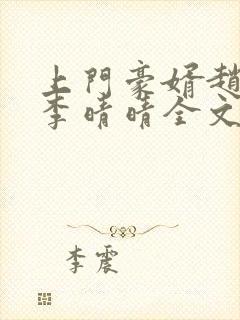 上門豪婿趙
李晴晴全文
李震